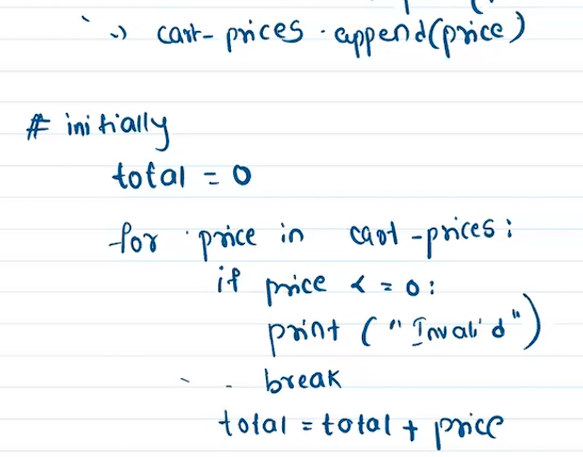 cart-prices.append(price)
# initially
total = 0
for price in cart-prices:
if price <= 0:
print ("Invalid")
break
total = total + price